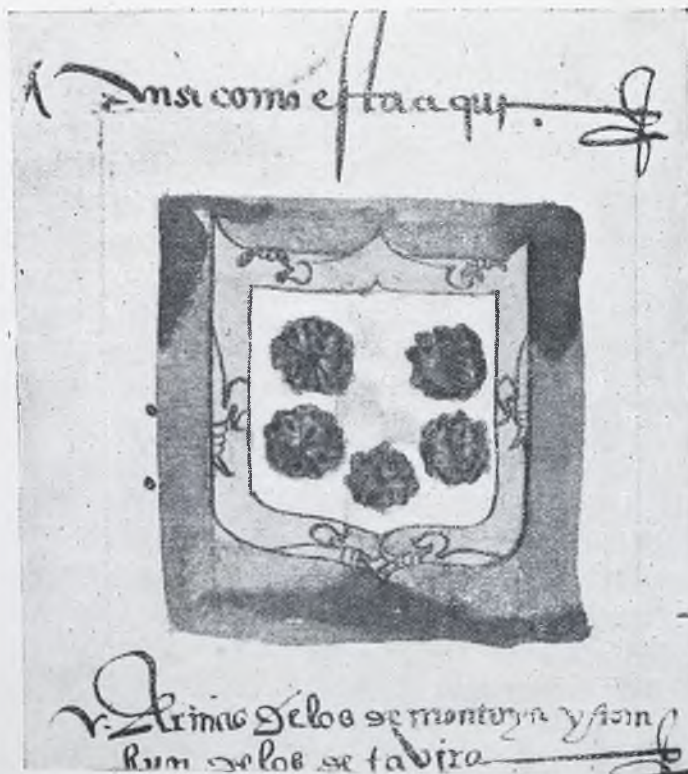 Ansi como esta aqui.
Armas de los de montoya y son
de los de tavira